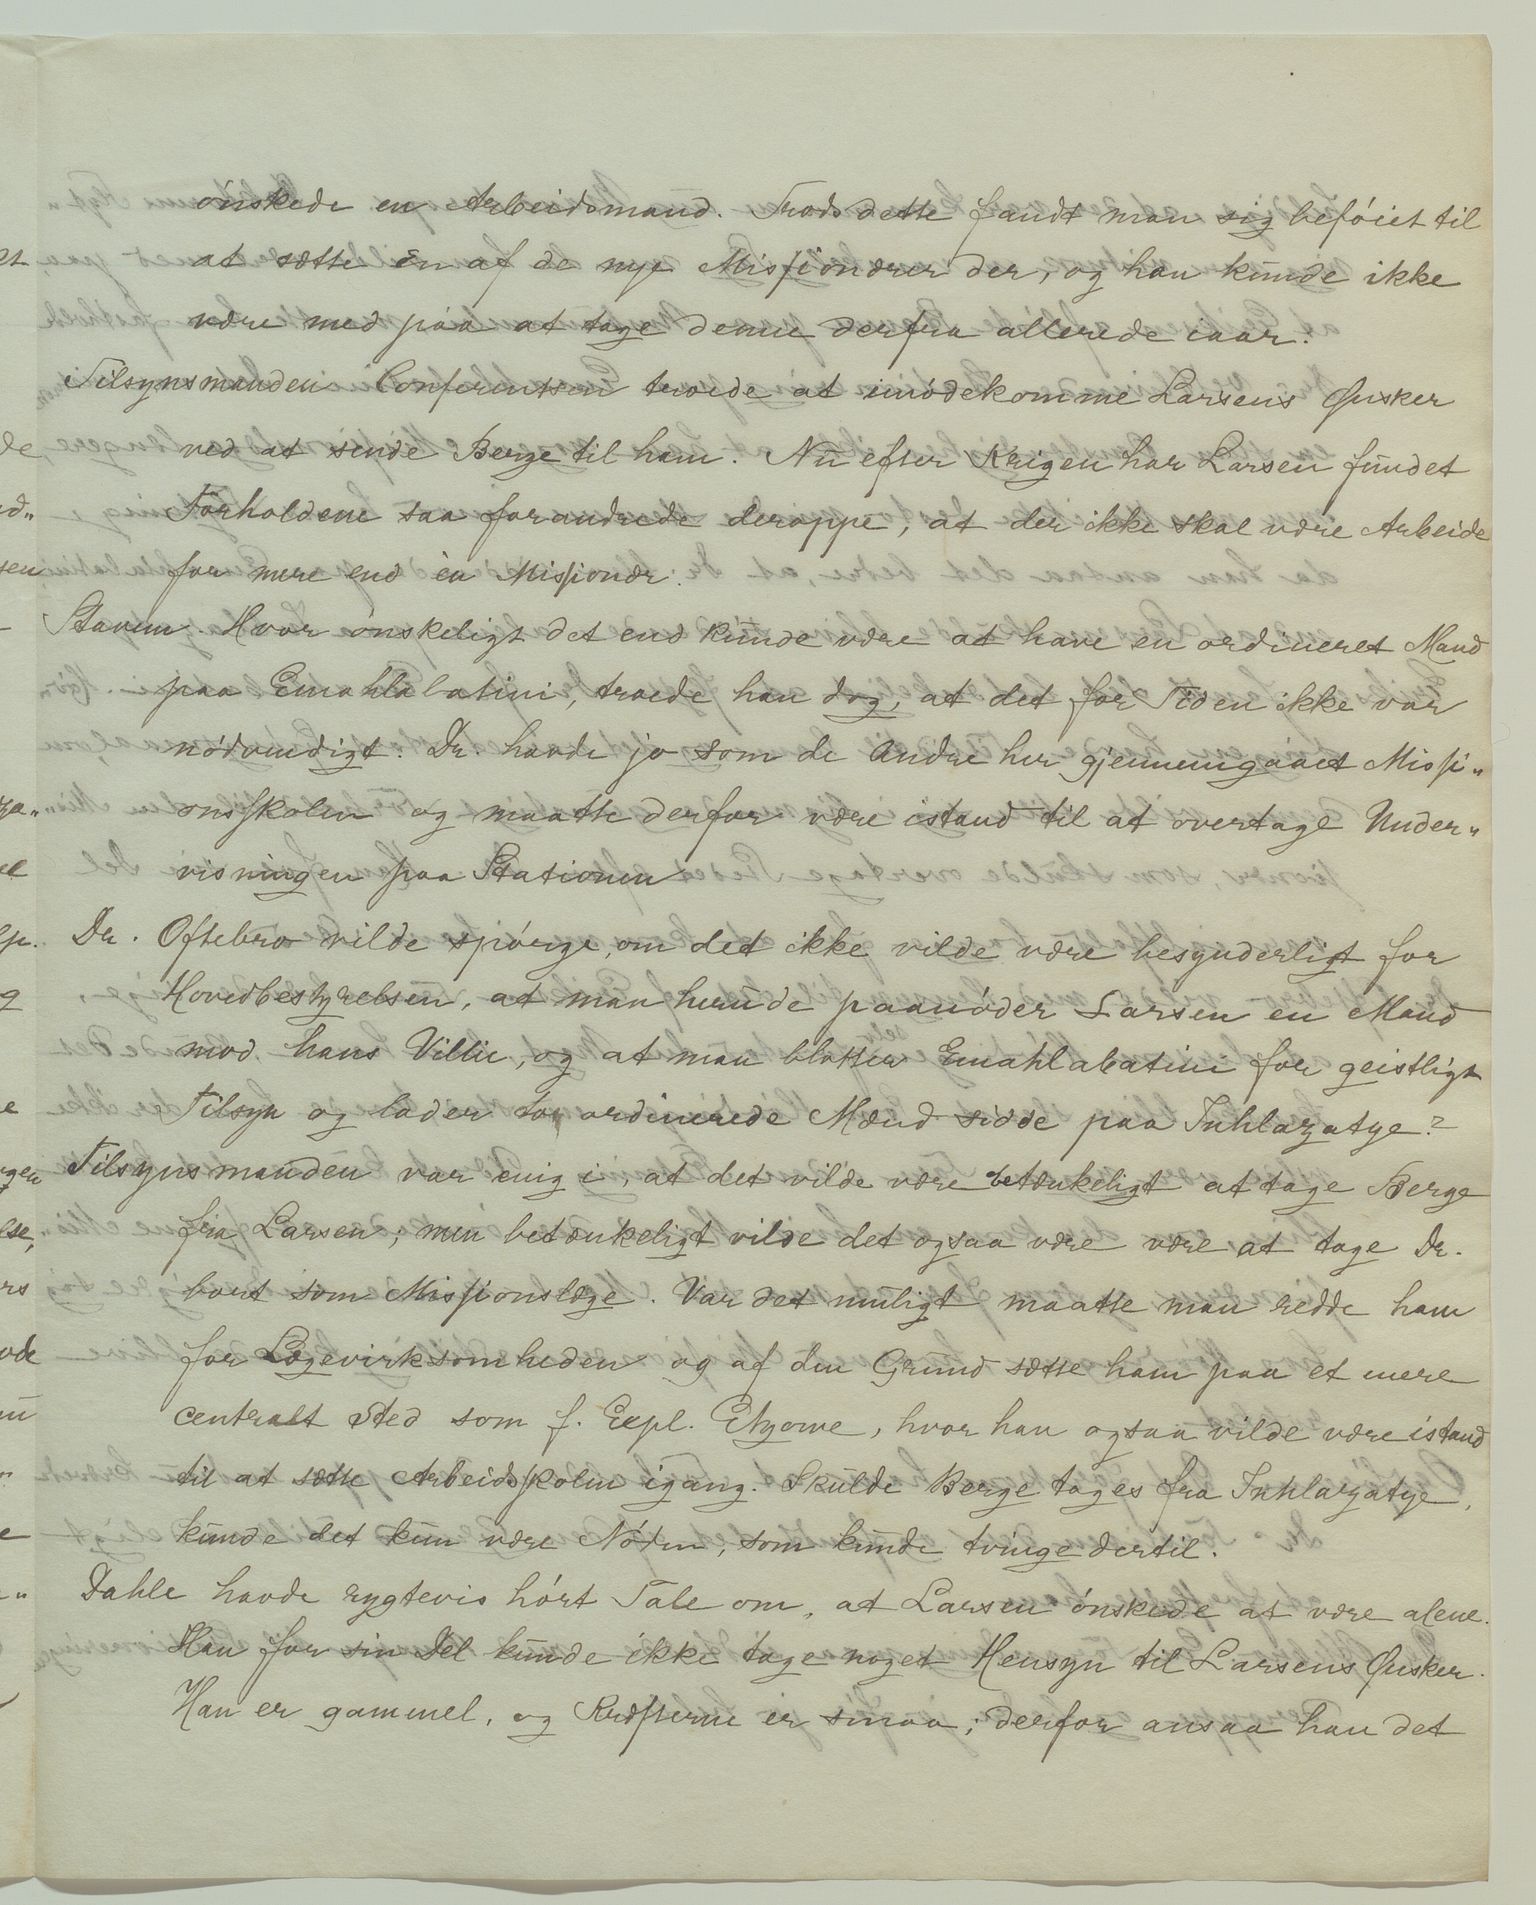 ønskede en Arbeidsmand. Trods dette fandt man sig beføiet til
at sætte èn af de nye Missionærer der, og han kunde ikke
være med paa at tage denne derfra allerede iaar.
Tilsynsmanden Conferentsen troede at imødekomme Larsens Ønsker
ved at sende Berge til ham. Nu efter Krigen har Larsen fundet
Forholdene saa forandrede deroppe, at der ikke skal være Arbeide
for mere end èn Missionær.
Stavem. Hvor ønskeligt det end kunde være at have en ordineret Mand
paa Emahlabatini, troede han dog, at det for Tiden ikke var
nødvendigt. Dr. havde jo som de Andre her gjennemgaaet Missi„
onsskolen og maatte derfor være istand til at overtage Under„
visningen paa Stationen
Dr. Oftebro vilde spørge, om det ikke vilde være besynderligt for
Hovedbestyrelsen, at man herude paanøder Larsen en Mand
mod hans Villie, og at man blotter Emahlabatini for geistligt
Tilsyn og lader to ordinerede Mænd sidde paa Inhlazatye?
Tilsynsmanden var enig i, at det vilde være betænkeligt at tage Berge
fra Larsen; men betænkeligt vilde det ogsaa være være at tage Dr.
bort som Missionslæge. Var det muligt maatte man redde ham
for Lægevirksomheden og af den Grund sætte ham paa et mere
centralt Sted som f. Expl. Ekjowe, hvor han ogsaa vilde være istand
til at sætte Arbeidsskolen igang. Skulde Berge tages fra Inhlazatye,
kunde det kun være Nøden, som kunde tvinge dertil.
Dahle havde rygtevis hørt Tale om, at Larsen ønskede at være alene.
Han for sin Del kunde ikke tage noget Hensyn til Larsens Ønsker.
Han er gammel, og Kræfterne er smaa; derfor ansaa han det